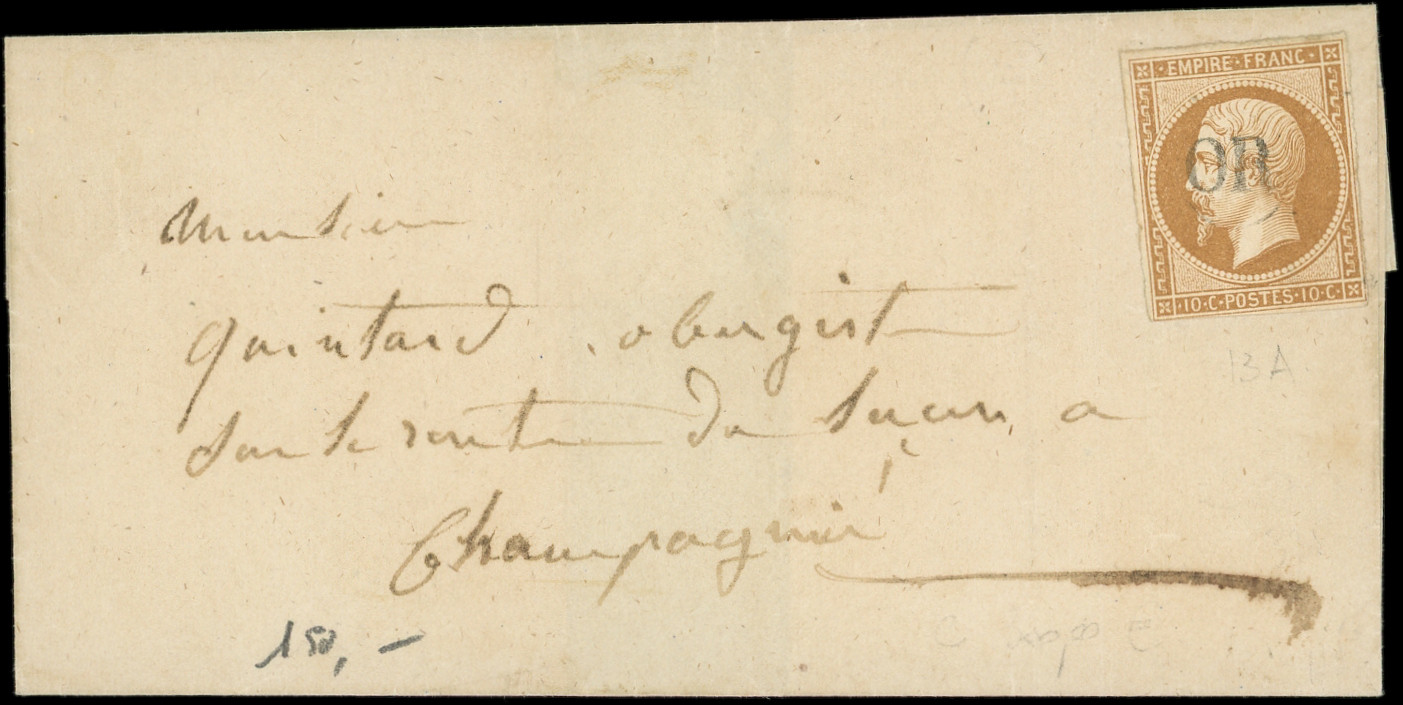 EMPIRE · FRANC ·
OR
· 10 · C · POSTES · 10 · C ·
Monsieur
quintard obergist
sur le route de a
Champagnié
13 A
150,-